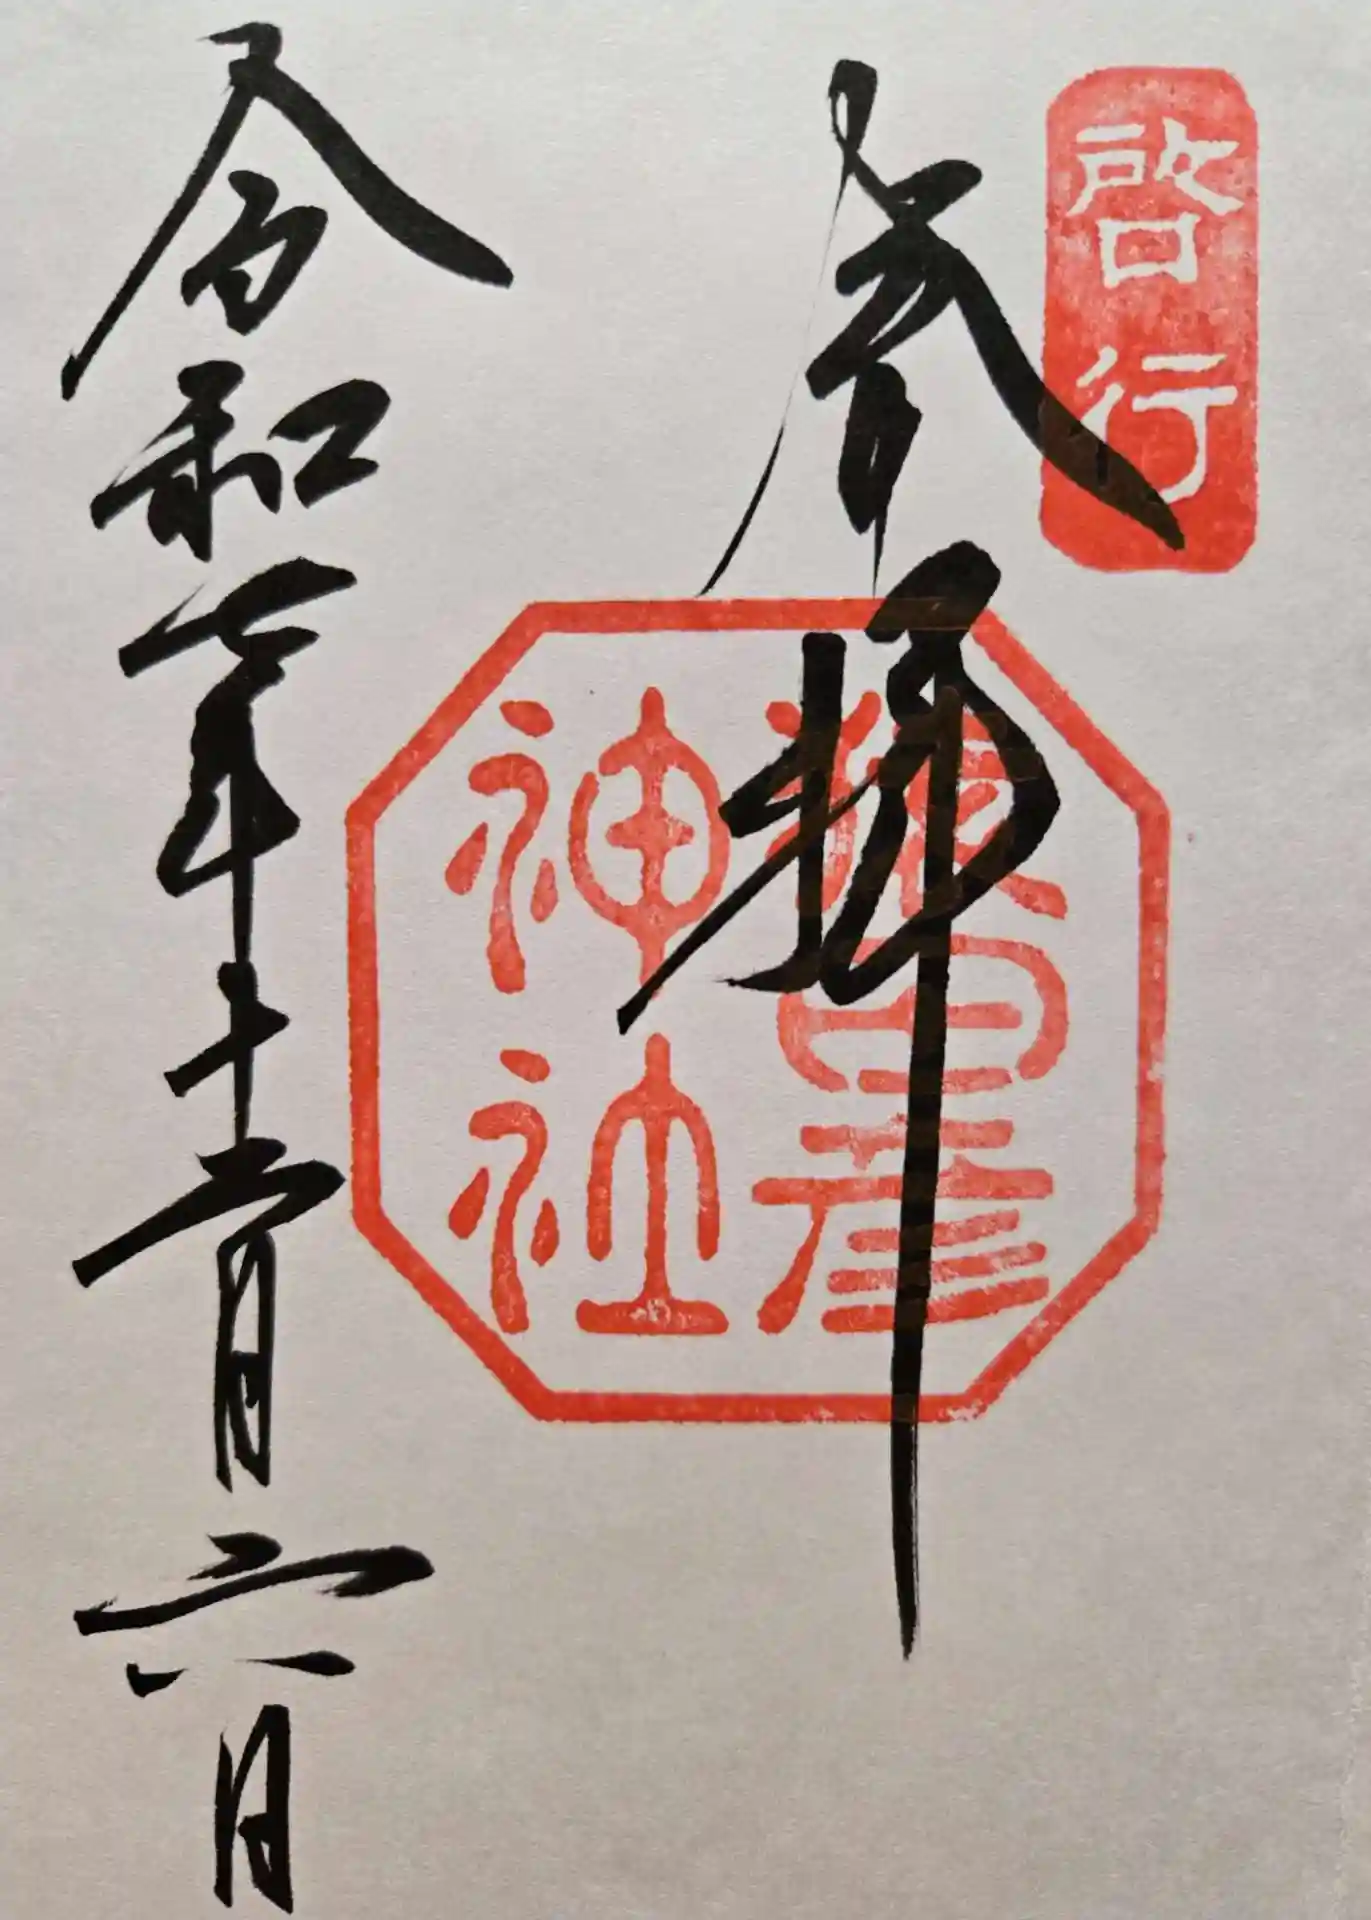 啓行
参拝
猿田彦
神社
令和七年十二月六日